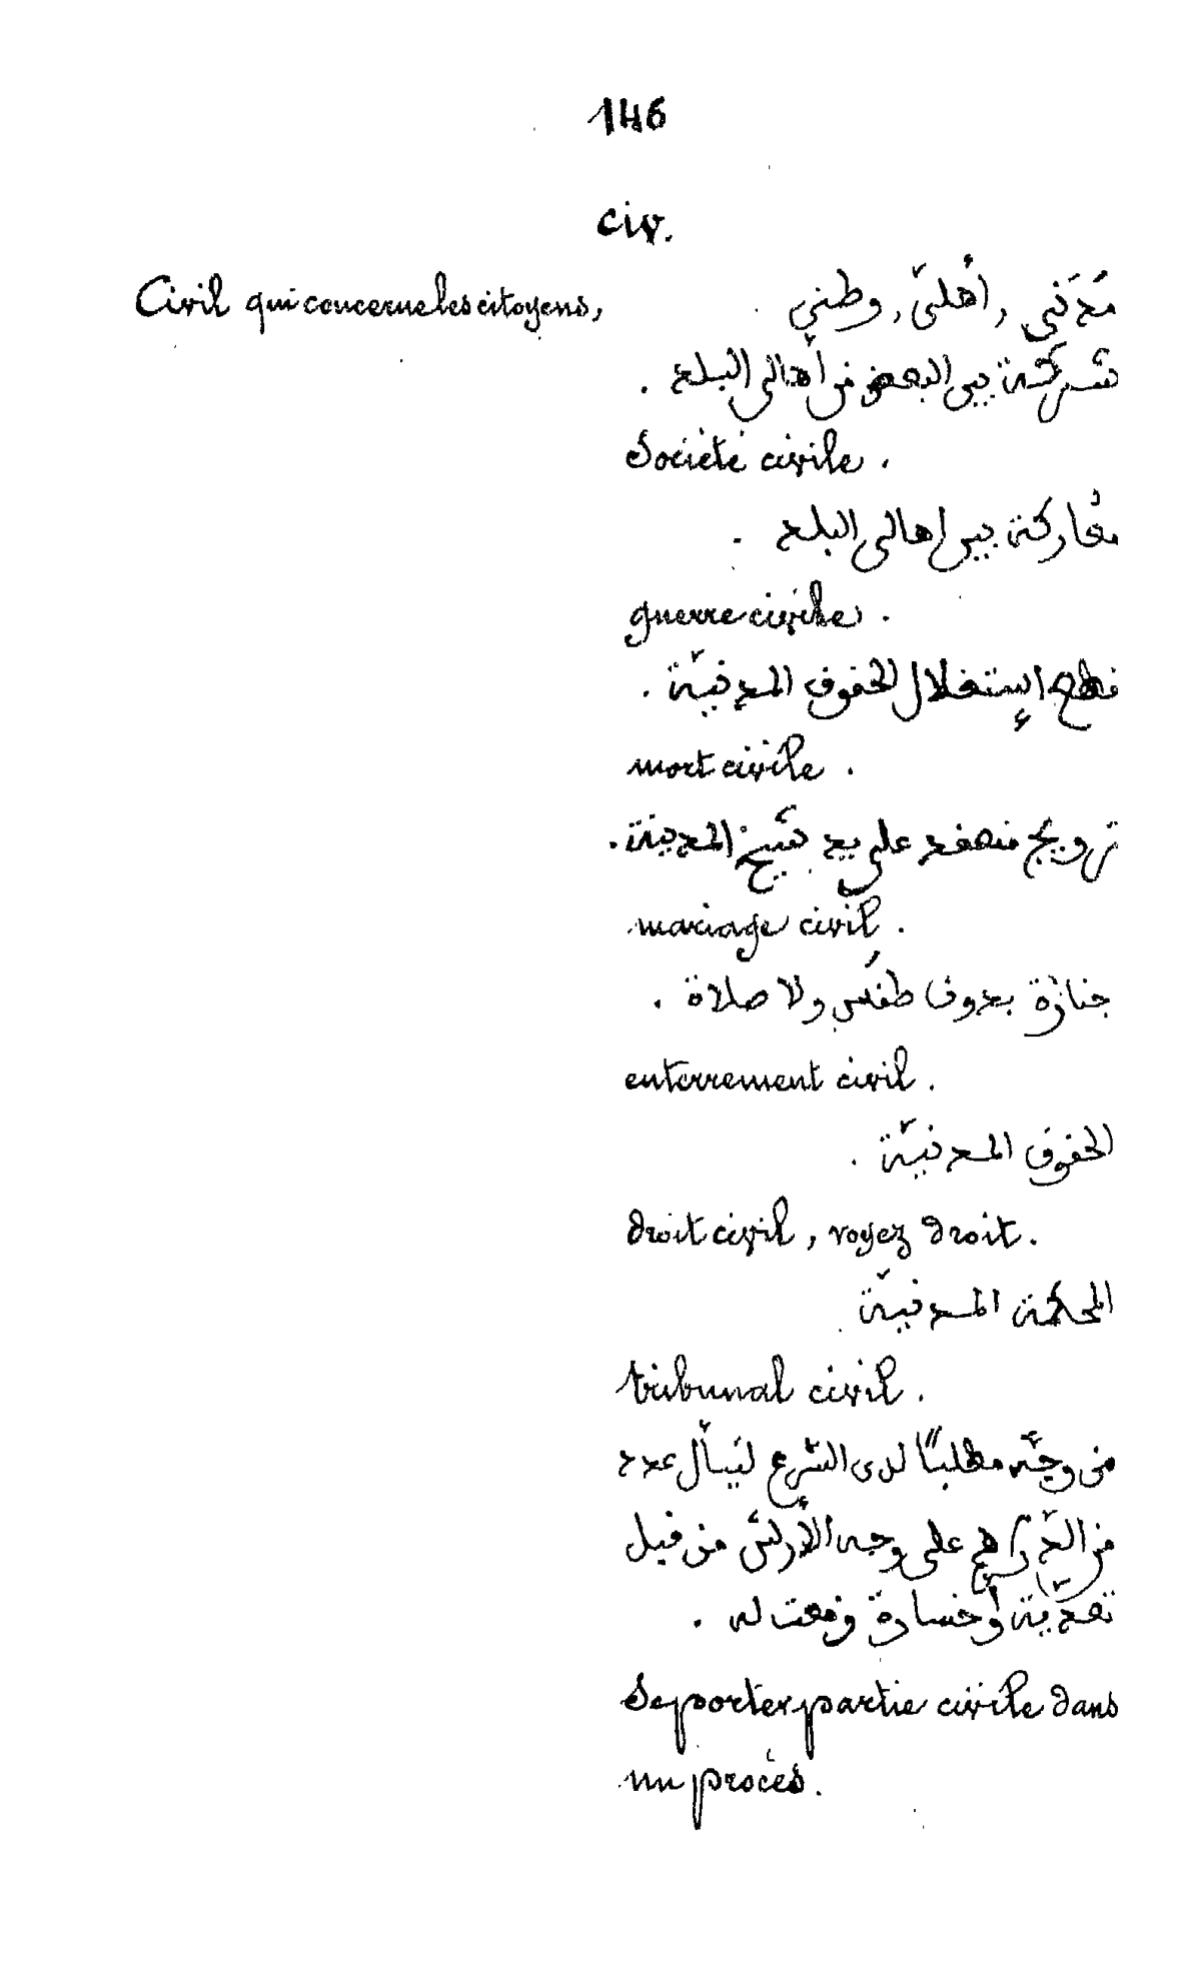 146
civ.
Civil qui concerne les citoyens, مَدَني , أهليّ , وطني
شركة بين البعض من أهالي البلد .
Société civile .
معاركة بين اهالي البلد .
guerre civile .
قطع إستغلال الحقوق المدنيّة .
mort civile .
تزويج منعقد على يد شيخ المدينة .
mariage civil .
جنازة بدون طقس ولا صلاة .
enterrement civil .
الحقوق المدنيّة .
droit civil , voyez droit .
المحكمة المدنيّة
tribunal civil .
من وجّه مطلبًا لدى الشرع لينال عدد
من الدّراهم على وجه الأرش من قبل
تعدّية أو خسارة وقعت له .
Se porter partie civile dans
un procès .